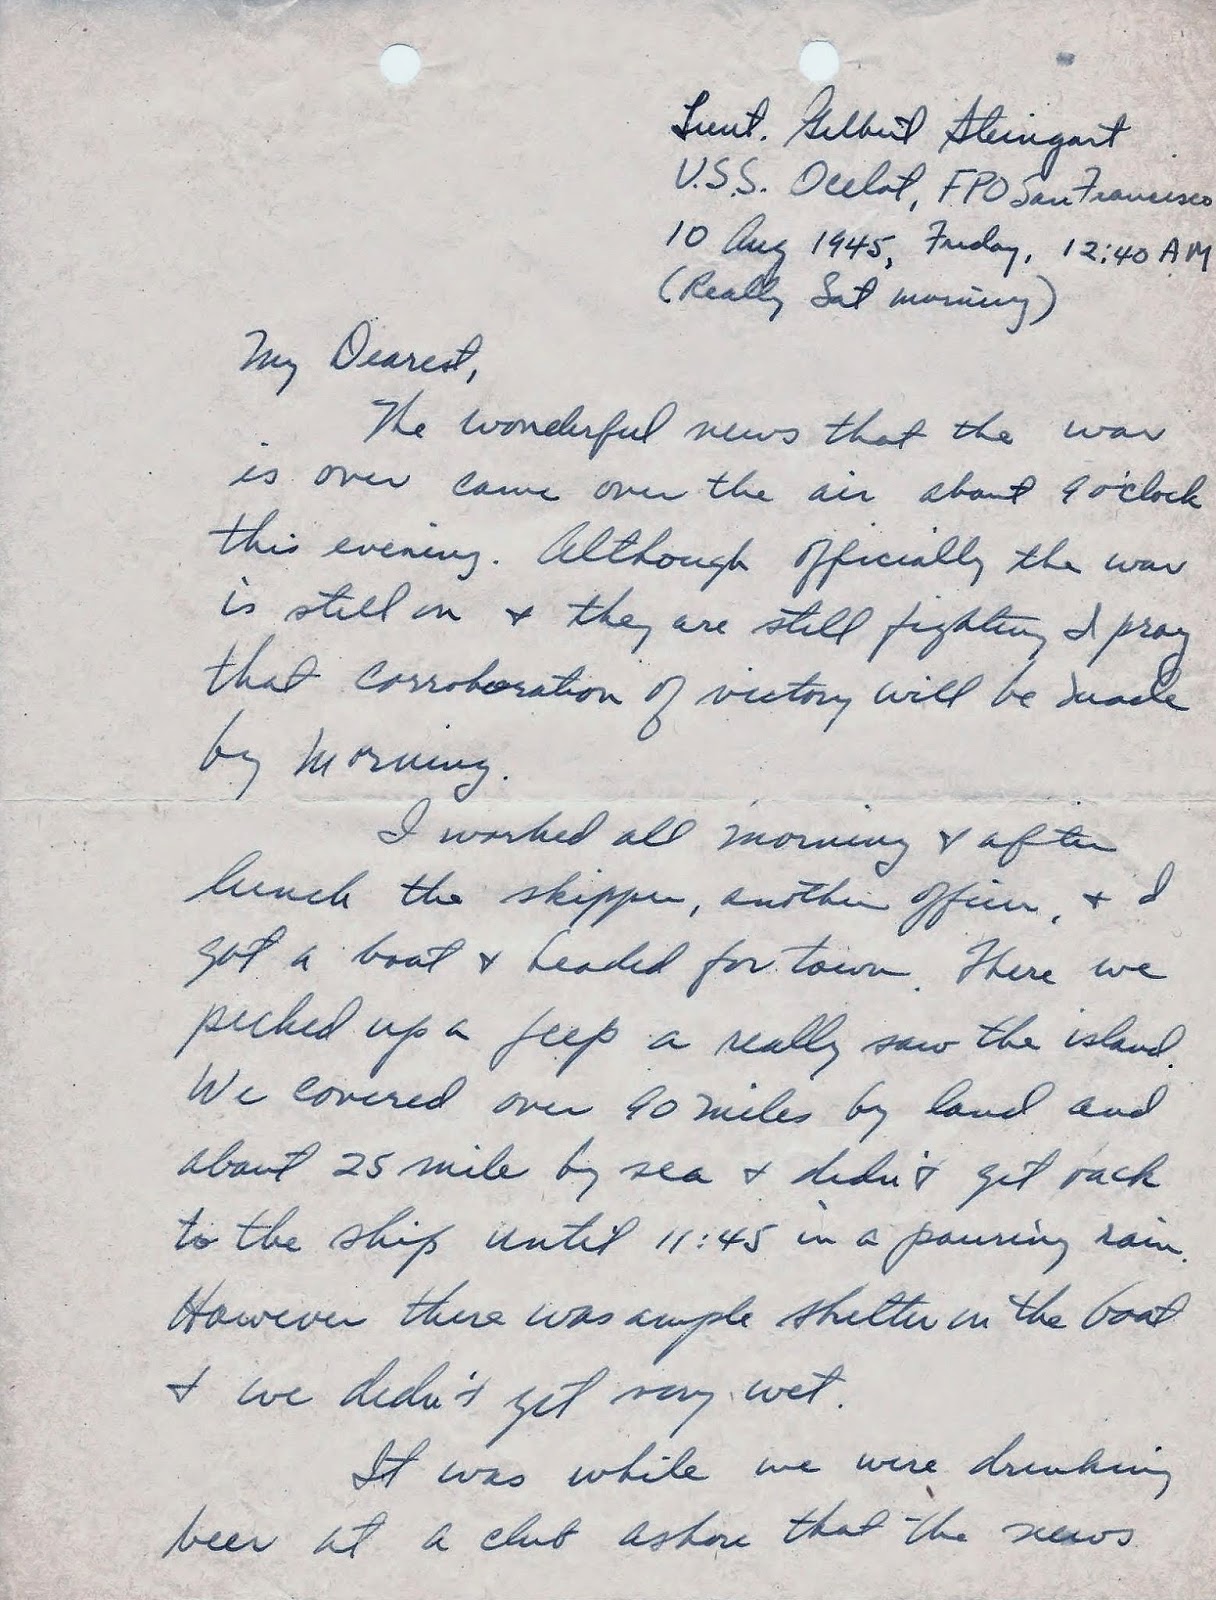 Lieut. Gilbert Steingart
U.S.S. Ocelot, FPO San Francisco
10 Aug 1945, Friday, 12:40 AM
(Really Sat morning)
My Dearest,
The wonderful news that the war
is over came over the air about 9 o'clock
this evening. Although officially the war
is still on & they are still fighting I pray
that corroboration of victory will be made
by morning.
I worked all morning & after
lunch the skipper, another officer, & I
got a boat & headed for town. There we
picked up a jeep a really saw the island.
We covered over 90 miles by land and
about 25 mile by sea & didn't get back
to the ship until 11:45 in a pouring rain.
However there was ample shelter in the boat
& we didn't get very wet.
It was while we were drinking
beer at a club ashore that the news